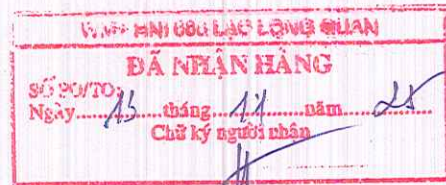 HNI 686 LẠC LONG QUÂN
ĐÃ NHẬN HÀNG
SỐ PO/TO:
Ngày 15 tháng 11 năm 25
Chữ ký người nhận